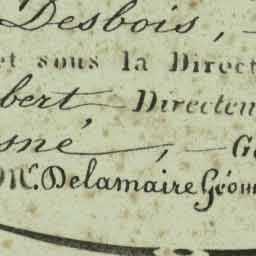 Desbois, —
et sous la Direct
bert, Directeu
sné, — Gé
Mr. Delamaire Géom